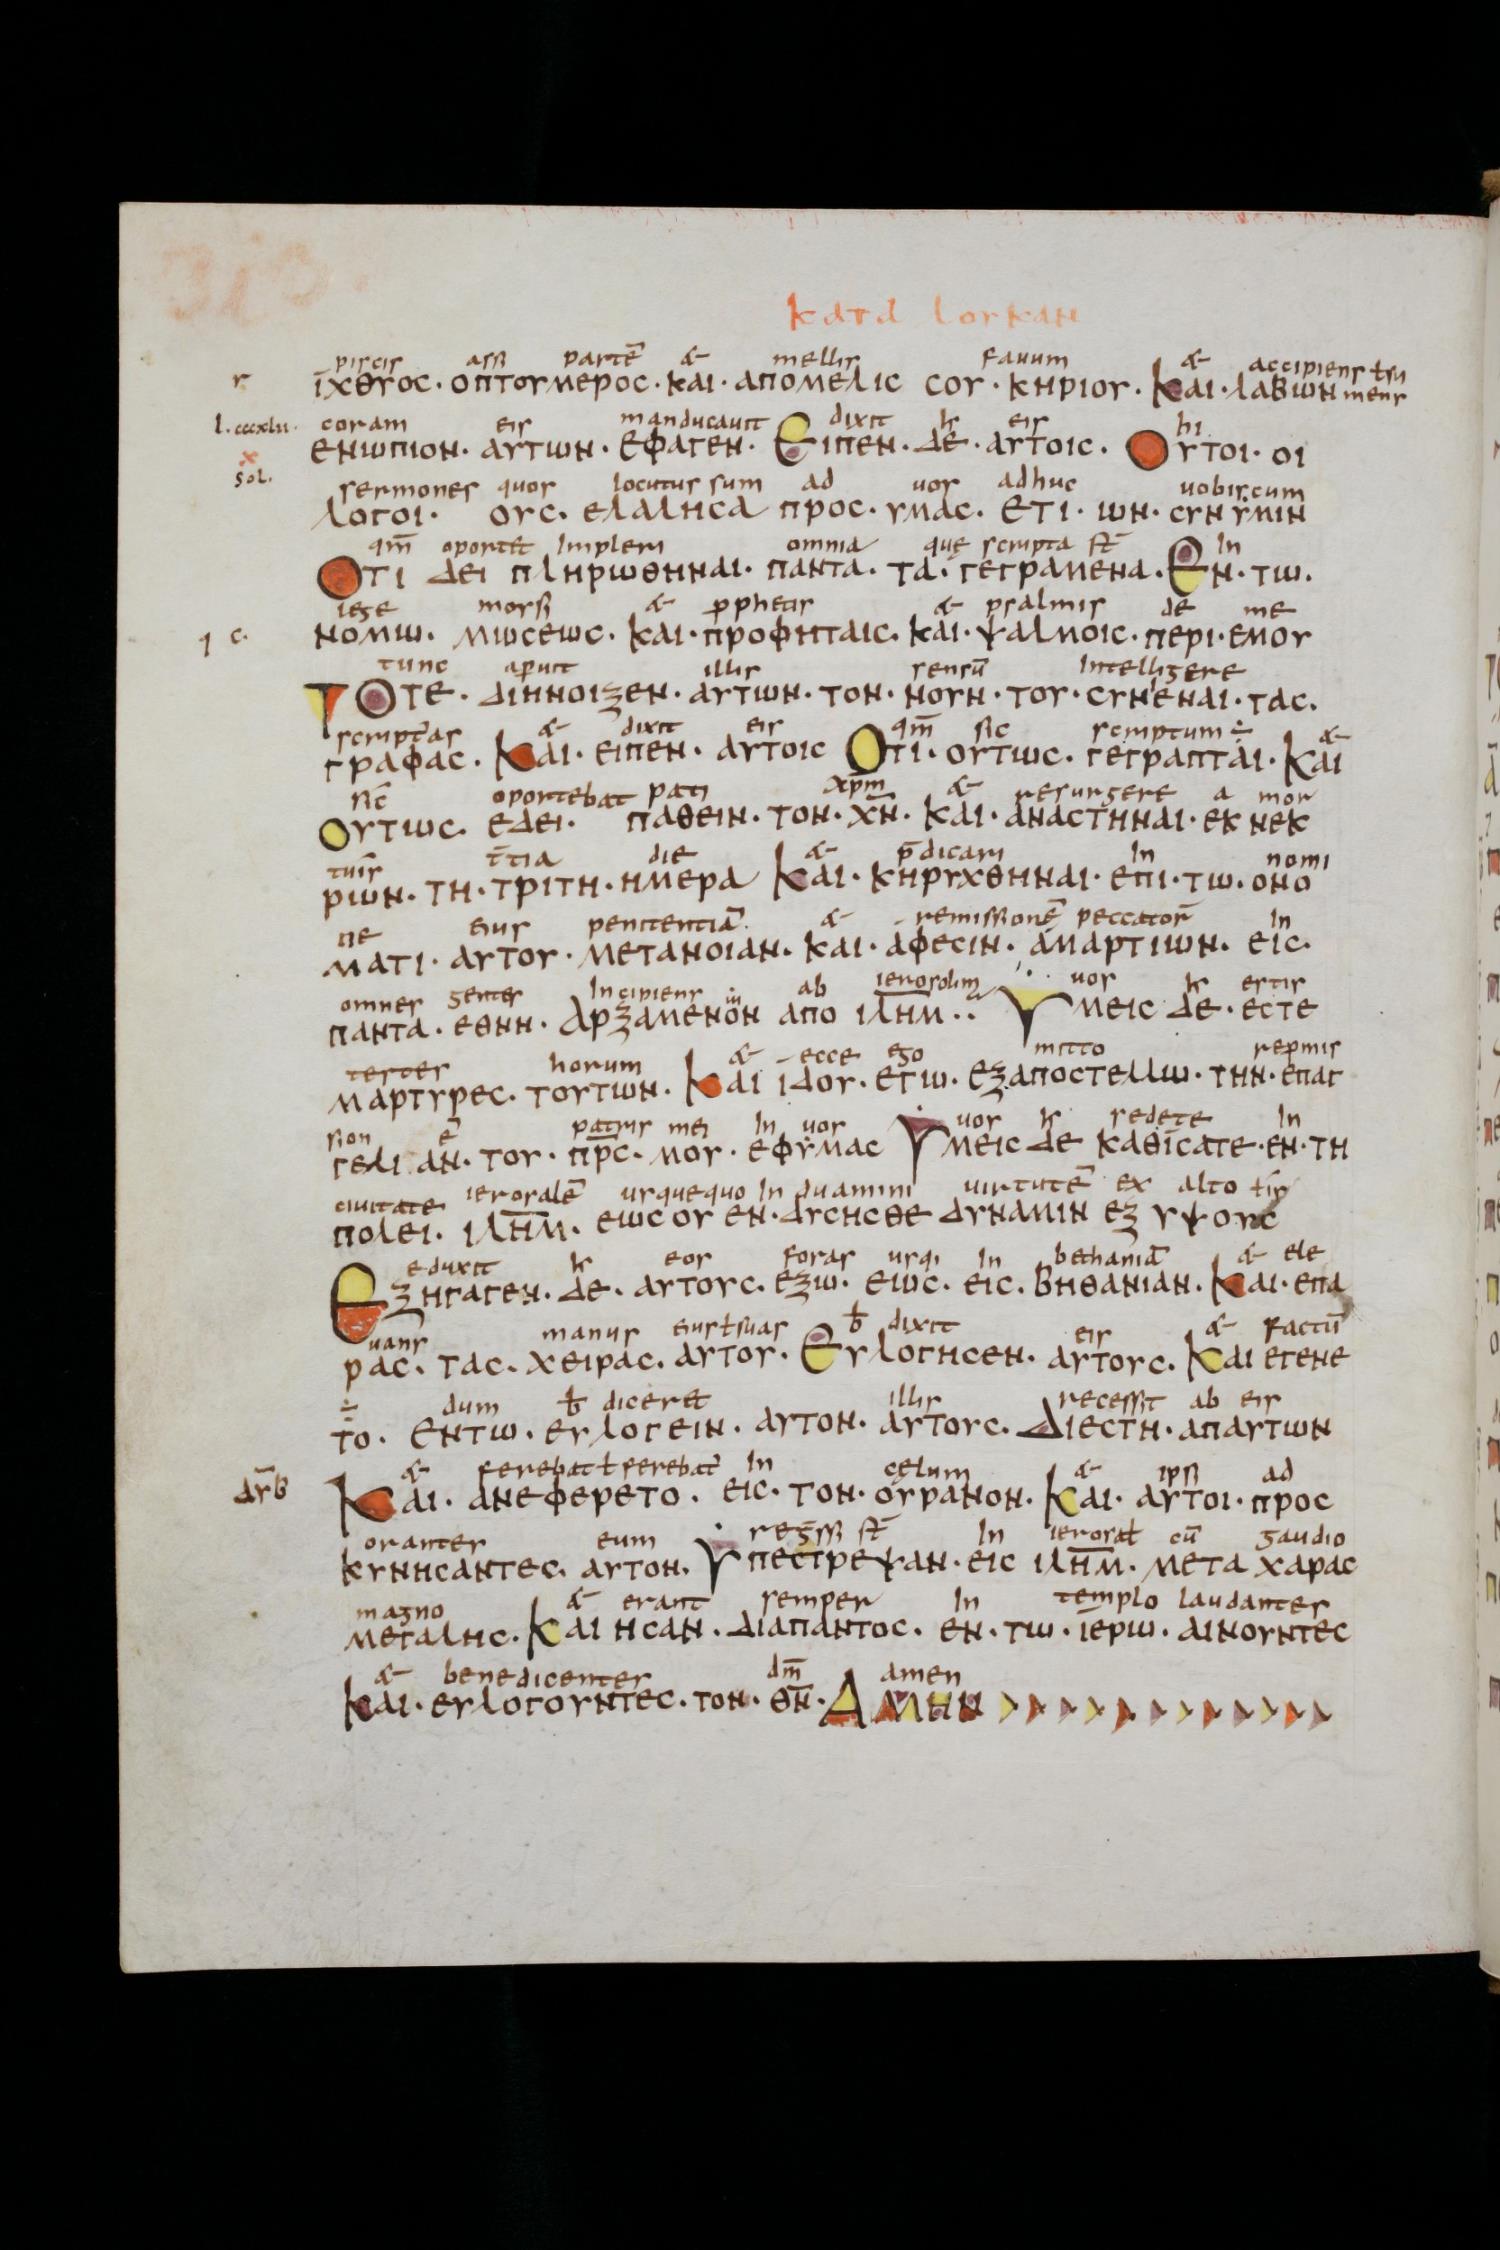 313.
κατα λογκαν
piscis assi partē & mellis fauum & accipiens ł su
r ιχθγος· οπτογμερος· και· απομελις σογ· κηριογ· Και· λαβων mens
coram eis manducauit dixit hr eis hi
l.cccxlii. ενωπιον· αγτων· εφαγεν· Ειπεν· δε· αγτοις· Ογτοι· οι
x
sermones quos locutus sum ad uos adhuc uobiscum
sol. λογοι· ογς· ελαλησα προς· γμας· ετι· ων· σγν γμιν
qm̄ oportet Impleri omnia que scripta st̄ In
Οτι δει πληρωθηναι· παντα· τα· γεγραμενα· Εν· τω·
lege mosi & ꝓphetis & psalmis de me
c. νομω· μωσεως· και· προφηταις· και· ψαλμοις· περι· εμογ
tunc aperuit illis sensū Intelligere
Τοτε· διηνοιξεν· αγτων· τον· νογν· τογ· σγνεναι· τας·
scripturas & dixit eis qm̄ sic scriptum ÷ &
γραφας· Και· ειπεν· αγτοις Οτι· ογτως· γεγραπται· Και
sic oportebat pati xp̄m & resurgere a mor
ογτως· εδει· παθειν· τον· χ̄ν̄· και· αναστηναι· εκ νεκ
tuis t̄tia die & p̄dicari In nomi
ριων· τη· τριτη· ημερα Και· κηργχθηναι· επι· τω· ονο
ne eius penitentiā & remissionē peccatorū In
ματι· αγτογ· μετανοιαν· και· αφεσιν· αμαρτιων· εις·
omnes gentes Incipiens ab ierosolim uos hr estis
παντα· εθνη· αρξαμενον απο ιλημ·· Υμεις δε· εστε
testes horum & ecce ego mitto repmis
μαρτγρες· τογτων· Και ιδογ· εγω· εξαποστελλω· την· επαγ
sion ē patris mei In uos uos hr sedete In
γελι αν· τογ· π̄ρ̄ς· μογ· εφγμας Υμεις δε καθισατε· εν· τη
ciuitate ierosalē usquequo Induamini uirtutē ex alto
πολει· ιλημ· εως ογ εν· δγσησθε δγναμιν εξ γψογς
eduxit hr eos foras usq; In bethaniā & ele
Εξηγαγεν· δε· αγτογς· εξω· εως· εις· βηθανιαν· Και· επα
uans manus eius ł suas b̄ dixit eis & factū
ρας· τας· χειρας· αγτογ· Εγλογησεν· αγτογς· Και εγενε
÷ dum b̄ diceret illis recessit ab eis
το· εντω· εγλογειν· αγτον· αγτογς· Διεστη· απαγτων
& ferebat ł ferebat̄ In cęlum & ipsi ad
δγ̄β Και· ανεφερετο· εις· τον· ογρανον· Και· αγτοι· προς
orantes eum regsi st̄ In ierosat cū gaudio
κγνησαντες· αγτον· Υπεστρεψαν· εις ιλημ· μετα χαρας
magno & erant semper In templo laudantes
μεγαλης· Και ησαν· διαπαντος· εν· τω· ιερω· αινογντες
& benedicentes dm̄ amen
Και· εγλογογντες· τον· θ̄ν̄· Αμην